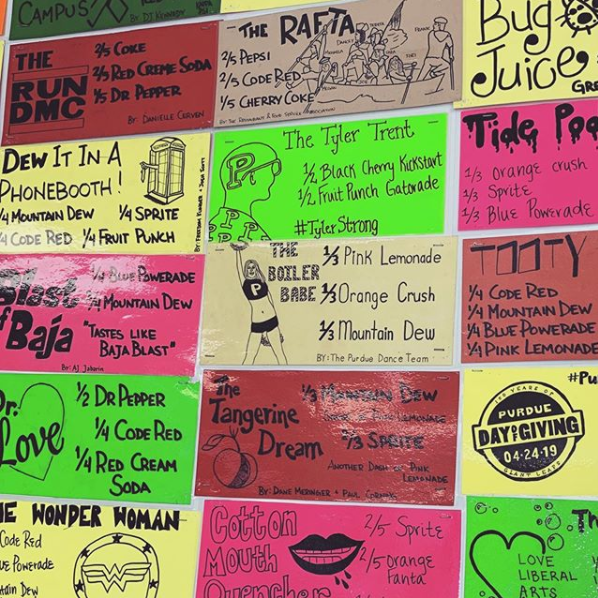 CAMPUS
BY: DJ KENNEDY
THE
RUN
DMC
2/5 COKE
2/5 RED CREME SODA
1/5 DR PEPPER
BY: DANIELLE CORVEN
THE RAFTA
2/5 PEPSI
2/5 CODE RED
1/5 CHERRY COKE
Bug
Juice
GRE
DEW IT IN A
PHONEBOOTH!
1/4 MOUNTAIN DEW 1/4 SPRITE
1/4 CODE RED 1/4 FRUIT PUNCH
The Tyler Trent
1/2 Black Cherry Kickstart
1/2 Fruit Punch Gatorade
#TylerStrong
Tide Poo
1/3 orange crush
1/3 Sprite
1/3 Blue Powerade
Blast
of
Baja
1/4 BLUE POWERADE
1/4 MOUNTAIN DEW
"TASTES LIKE
BAJA BLAST"
THE
BOILER
BABE
1/3 Pink Lemonade
1/3 Orange Crush
1/3 Mountain Dew
BY: The Purdue Dance Team
TOOTY
1/4 CODE RED
1/4 MOUNTAIN DEW
1/4 BLUE POWERADE
1/4 PINK LEMONADE
Dr.
Love
1/2 DR PEPPER
1/4 CODE RED
1/4 RED CREAM
SODA
The
Tangerine
Dream
1/3 MOUNTAIN DEW
PINK LEMONADE
2/3 SPRITE
ANOTHER DASH OF PINK
LEMONADE
#Pu
150 YEARS OF
PURDUE
DAY OF GIVING
04-24-19
GIANT LEAPS
HE WONDER WOMAN
Code Red
Blue Powerade
tain Dew
Cotton
Mouth
Quencher
2/5 Sprite
2/5 orange
Fanta
Th
LOVE
LIBERAL
ARTS